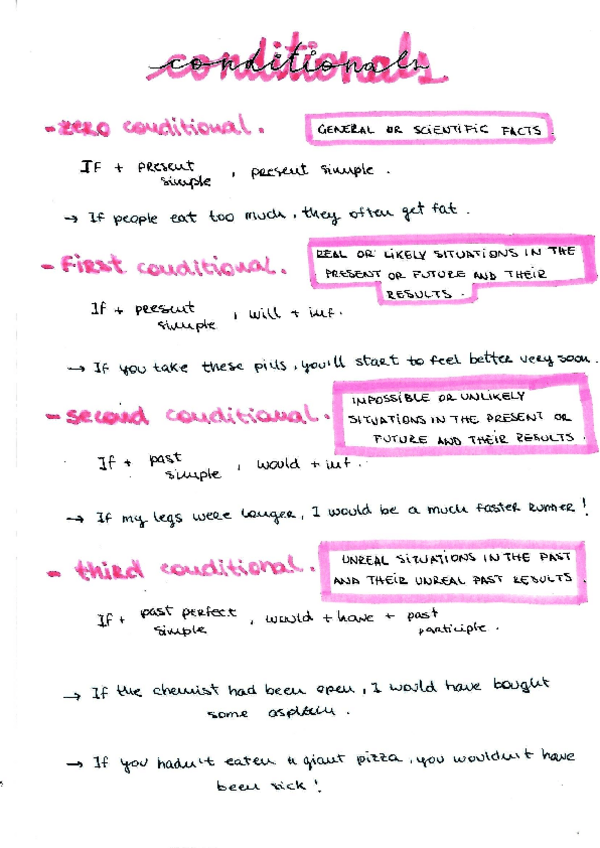 conditionals.
- zero conditional.
GENERAL OR SCIENTIFIC FACTS.
If + present simple, present simple.
→ If people eat too much, they often get fat.
- first conditional.
REAL OR LIKELY SITUATIONS IN THE
PRESENT OR FUTURE AND THEIR
RESULTS.
If + present simple, will + inf.
→ If you take these pills, you'll start to feel better very soon.
- second conditional.
IMPOSSIBLE OR UNLIKELY
SITUATIONS IN THE PRESENT OR
FUTURE AND THEIR RESULTS.
If + past simple, would + inf.
→ If my legs were longer, I would be a much faster runner!
- third conditional.
UNREAL SITUATIONS IN THE PAST
AND THEIR UNREAL PAST RESULTS
If + past perfect simple, would + have + past participle.
→ If the chemist had been open, I would have bought
some
→ If you hadn't eaten a giant pizza, you wouldn't have
been sick!